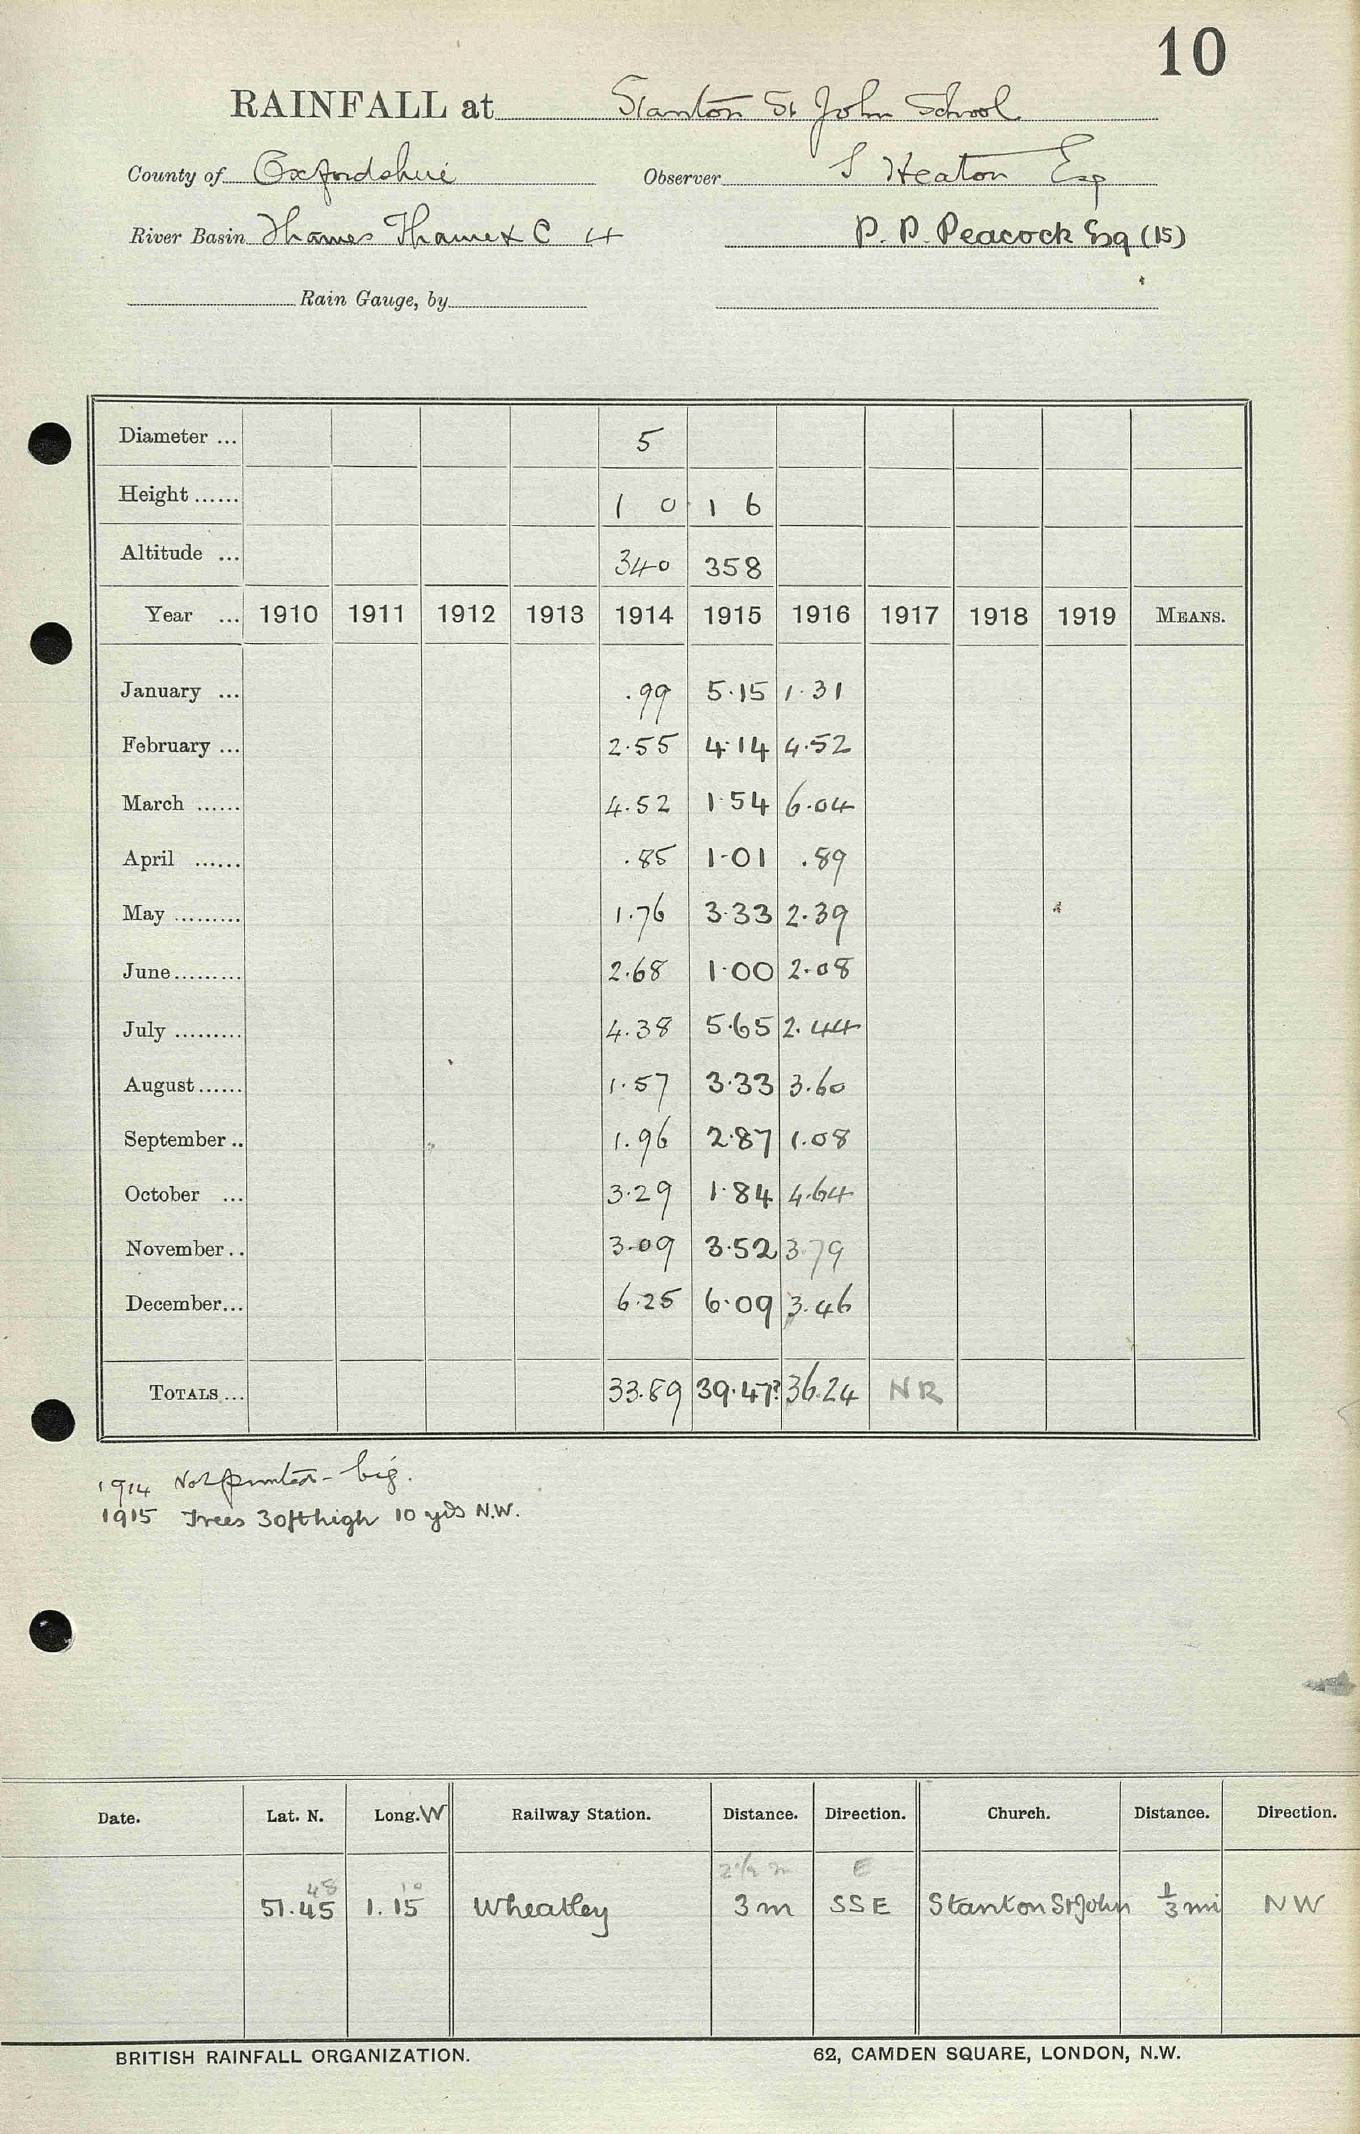 10
RAINFALL at Stanton St John School
County of Oxfordshire Observer S Heaton Esq
River Basin Thames Thame & C 4 P. P. Peacock Esq (15)
Rain Gauge, by
Diameter ... 5
Height ...... 1 0 1 6
Altitude ... 340 358
Year ... 1910 1911 1912 1913 1914 1915 1916 1917 1918 1919 MEANS.
January ... .99 5.15 1.31
February ... 2.55 4.14 4.52
March ...... 4.52 1.54 6.04
April ...... .85 1.01 .89
May ......... 1.76 3.33 2.39
June ......... 2.68 1.00 2.08
July ......... 4.38 5.65 2.44
August ...... 1.57 3.33 3.60
September .. 1.96 2.87 1.08
October ... 3.29 1.84 4.64
November .. 3.09 3.52 3.79
December ... 6.25 6.09 3.46
TOTALS ... 33.89 39.47? 36.24 NR
1914 Not printed - big.
1915 Trees 30ft high 10 yds N.W.
Date. Lat. N. Long. W Railway Station. Distance. Direction. Church. Distance. Direction.
48 10 2½ m E
51.45 1.15 Wheatley 3 m SSE Stanton St John ⅓ mi NW
BRITISH RAINFALL ORGANIZATION. 62, CAMDEN SQUARE, LONDON, N.W.